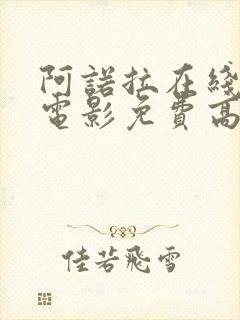 阿諾拉在綫
電影免費高
佳若飛雪